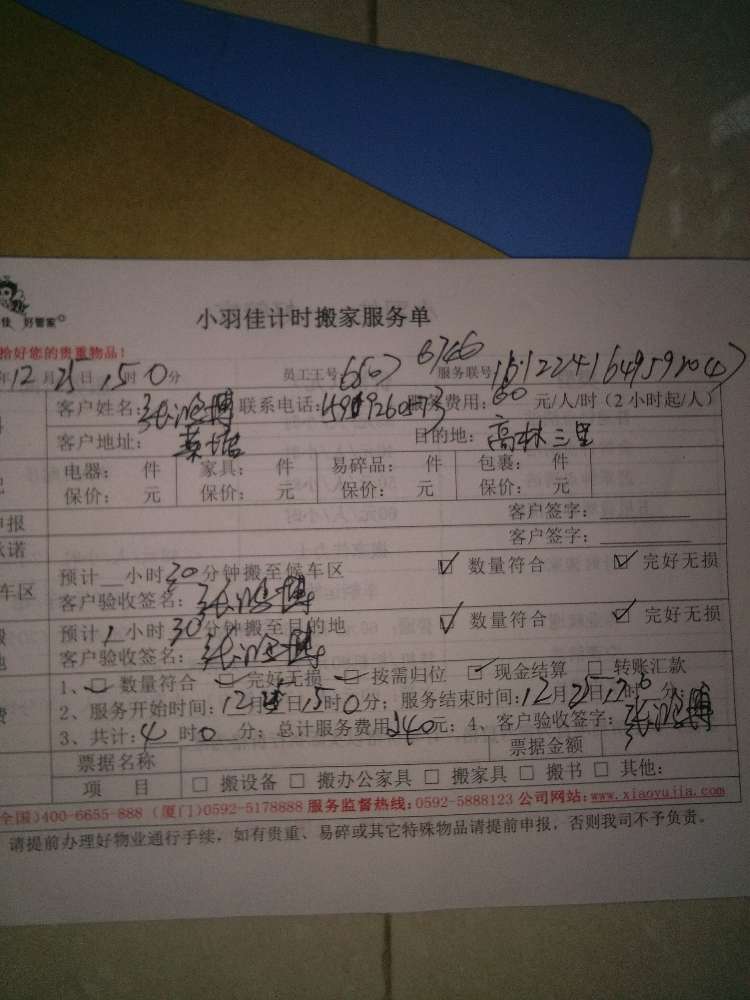 佳 好管家
小羽佳计时搬家服务单
拾好您的贵重物品!
年12月25日15时0分 员工工号 6746 服务联号
客户姓名: 联系电话: 服务费用:60元/人/时(2小时起/人)
客户地址: 目的地:高林三里
电器: 件 家具: 件 易碎品: 件 包裹: 件
保价: 元 保价: 元 保价: 元 保价: 元
申报 客户签字:
承诺 客户签字:
预计__小时30分钟搬至候车区 ☑ 数量符合 ☑ 完好无损
车区 客户验收签名:
预计1小时30分钟搬至目的地 ☑ 数量符合 ☑ 完好无损
客户验收签名:
1、☑ 数量符合 ☑ 完好无损 ☑ 按需归位 ☑ 现金结算 □ 转账汇款
2、服务开始时间:12月25日15时0分;服务结束时间:12月25日17时0分
3、共计:4时0分;总计服务费用240元;4、客户验收签字:
票据名称 票据金额
项 目 □ 搬设备 □ 搬办公家具 □ 搬家具 □ 搬书 □ 其他:
全国)400-6655-888 (厦门)0592-5178888 服务监督热线:0592-5888123 公司网站:www.xiaoyujia.com
请提前办理好物业通行手续,如有贵重、易碎或其它特殊物品请提前申报,否则我司不予负责。